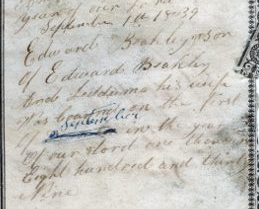 year of our
September 1st 1839
Edward Beakley son
of Edward Beakley
And his wife
was on the first
of September in the year
of our Lord one thous
Eight hundred and thirt
Nine